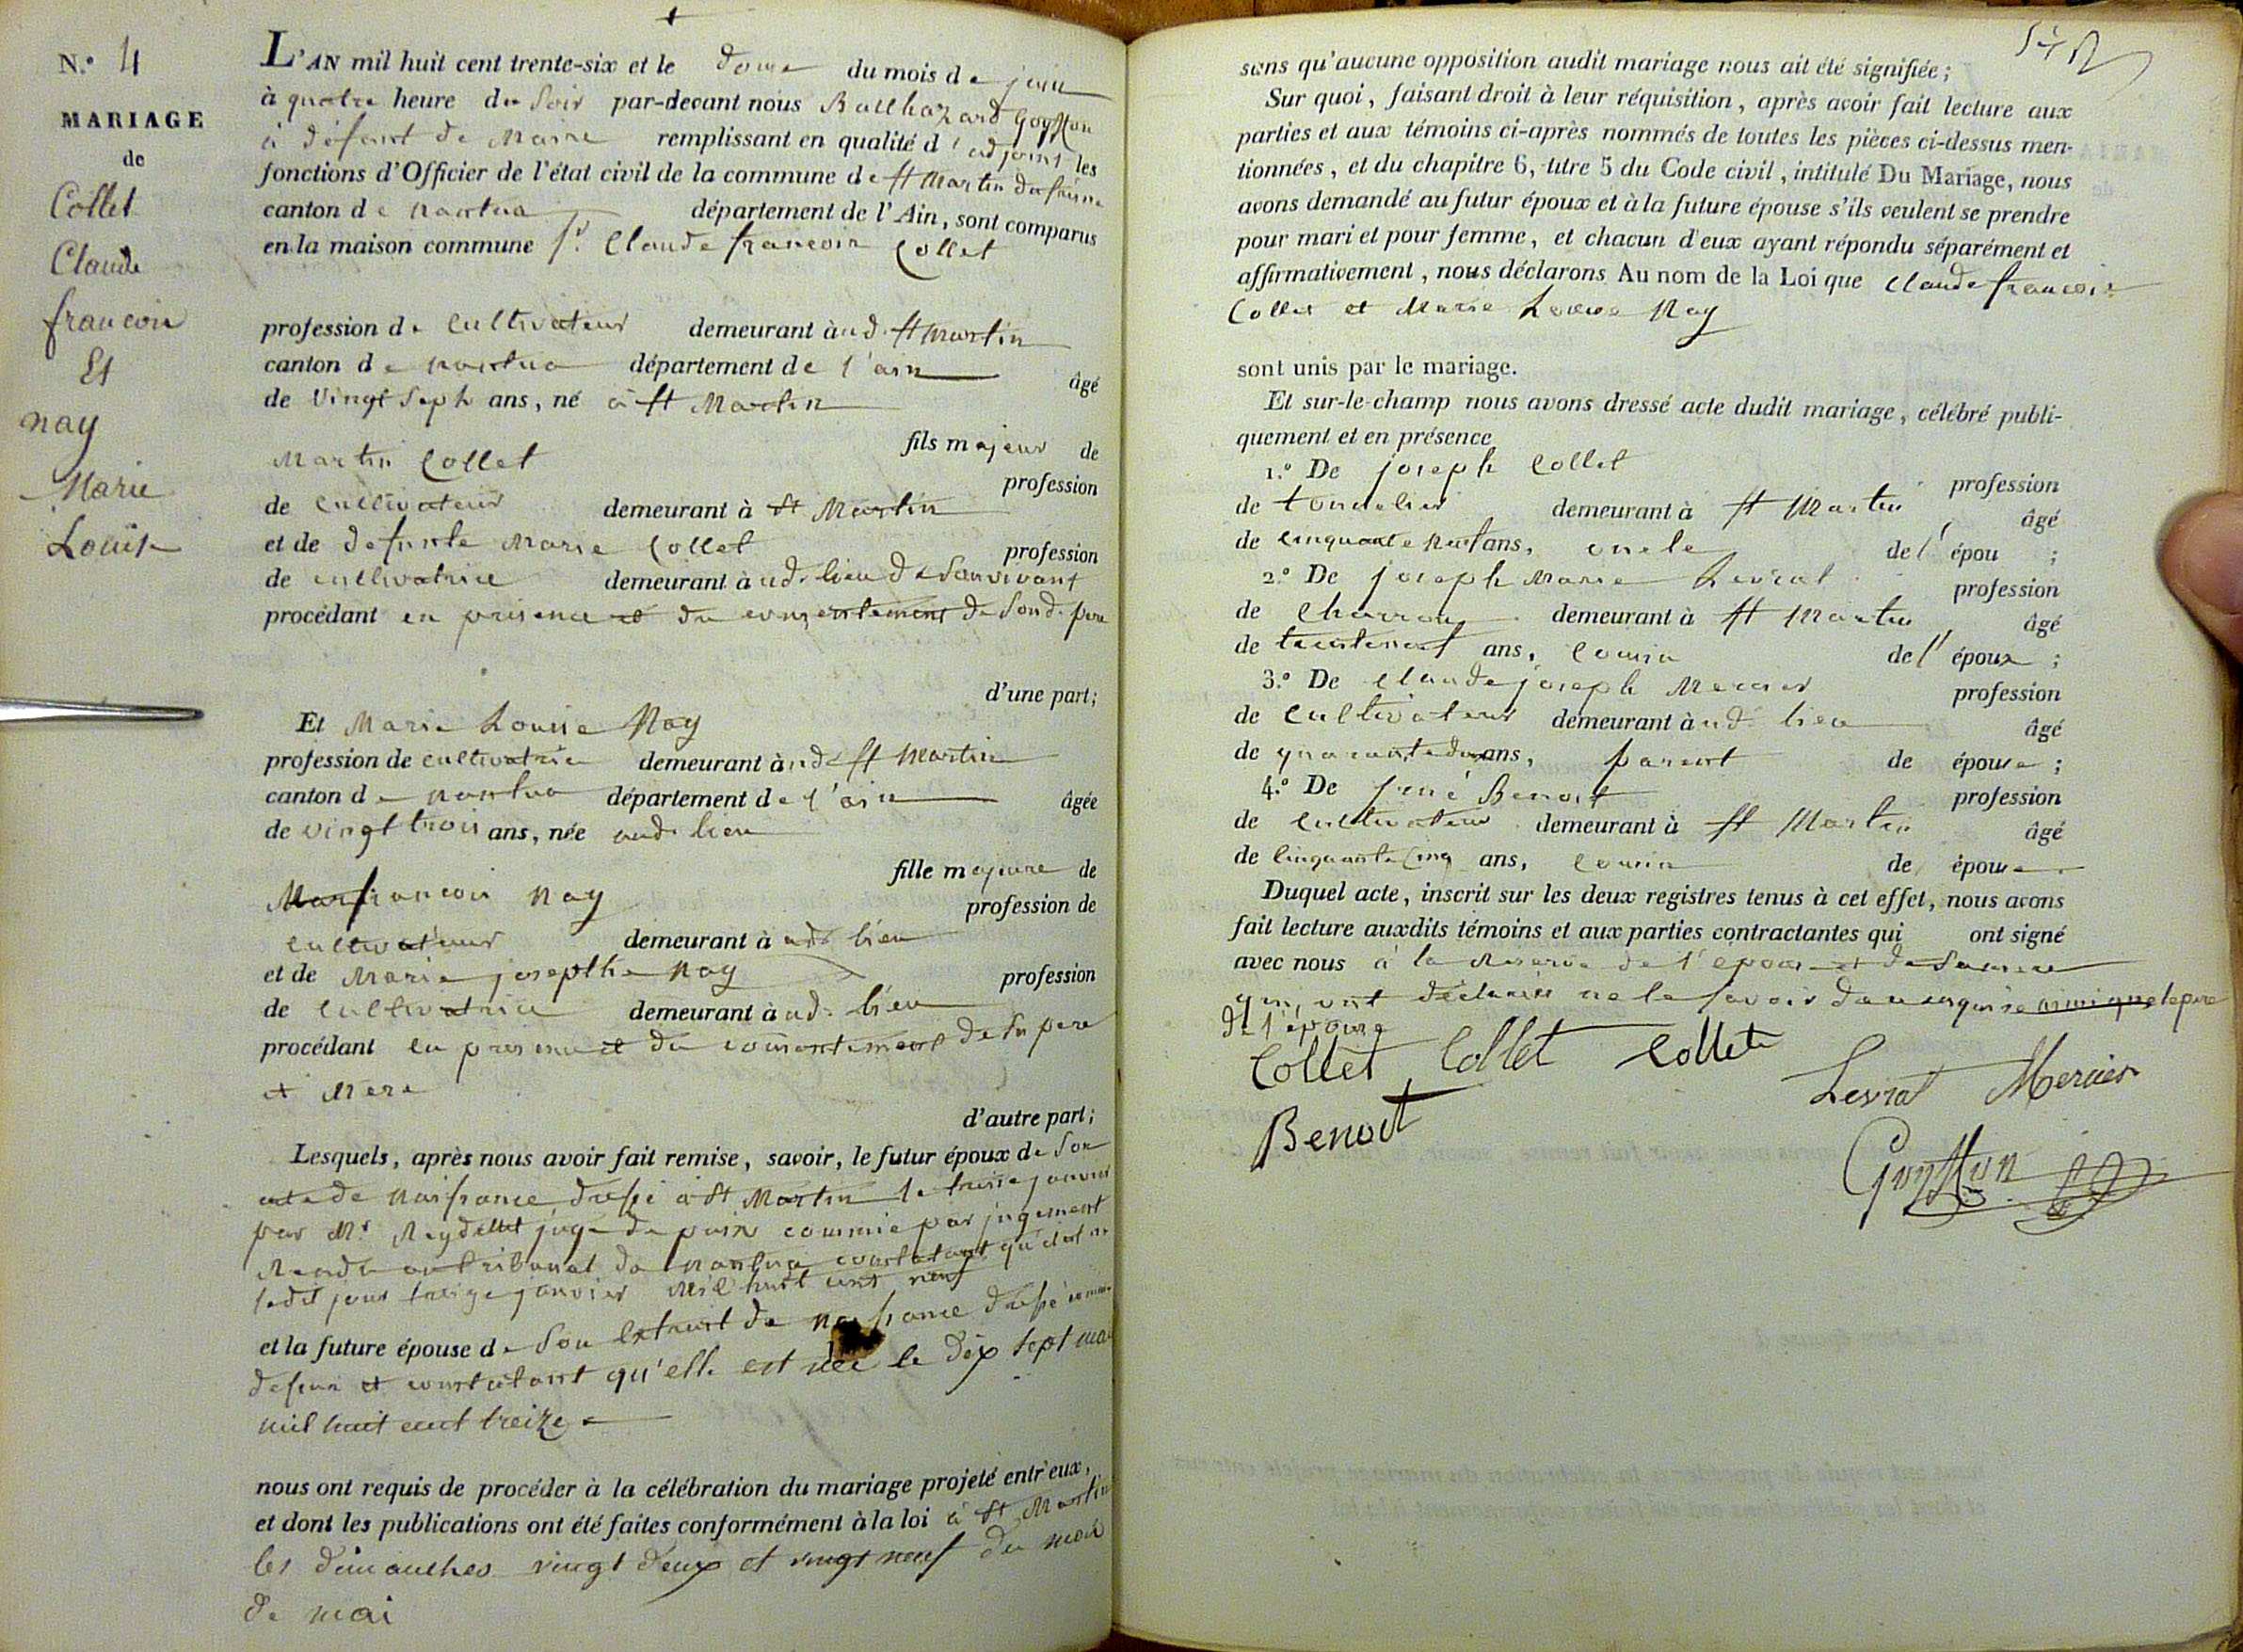 N.° 4
MARIAGE
de
Collet
Claude
francois
Et
nay
Marie
Louise
L'AN mil huit cent trente-six et le douze du mois de juin
à quatre heure du soir par-devant nous Balthazard Goyffon
à défaut de Maire remplissant en qualité d'adjoint les
fonctions d'Officier de l'état civil de la commune de st Martin du fresne
canton de nantua département de l'Ain, sont comparus
en la maison commune Sr. Claude francois Collet
profession de cultivateur demeurant à ud. st Martin
canton de nantua département de l'ain âgé
de vingt sept ans, né à st Martin
fils majeur de
Martin Collet profession
de cultivateur demeurant à st Martin
et de defunte Marie Collet profession
de cultivatrice demeurant à ud. lieu de son vivant
procédant en presence et du consentement de son d. pere
d'une part;
Et Marie Louise Nay
profession de cultivatrice demeurant à ud st Martin
canton de nantua département de l'ain âgée
de vingt trois ans, née aud. lieu
fille majeure de
francois Nay profession de
cultivateur demeurant à ud. lieu
et de Marie josepthe Nay profession
de cultivatrice demeurant à ud. lieu
procédant en presence et du consentement de ses pere
et Mere
d'autre part;
Lesquels, après nous avoir fait remise, savoir, le futur époux de son
acte de naissance dressé à St Martin le treize janvier
par Mr. Reydellet juge de paix commis par jugement
Rendu au tribunal de nantua constatant qu'il est né
ledit jour treize janvier Mil huit cent neuf
et la future épouse de son Extrait de naissance dressé comme
dessus et constatant qu'elle est née le dix sept mai
mil huit cent treize
nous ont requis de procéder à la célébration du mariage projeté entr'eux,
et dont les publications ont été faites conformément à la loi à St Martin
les dimanches vingt deux et vingt neuf du mois
de mai
sans qu'aucune opposition audit mariage nous ait été signifiée;
Sur quoi, faisant droit à leur réquisition, après avoir fait lecture aux
parties et aux témoins ci-après nommés de toutes les pièces ci-dessus men-
tionnées, et du chapitre 6, titre 5 du Code civil, intitulé Du Mariage, nous
avons demandé au futur époux et à la future épouse s'ils veulent se prendre
pour mari et pour femme, et chacun d'eux ayant répondu séparément et
affirmativement, nous déclarons Au nom de la Loi que Claude francois
Collet et Marie Louise Nay
sont unis par le mariage.
Et sur-le-champ nous avons dressé acte dudit mariage, célébré publi-
quement et en présence
1.° De joseph Collet profession
de tonnelier demeurant à st Martin âgé
de cinquante neuf ans, oncle de l'épou ;
2.° De joseph Marie Levrat profession
de Charron demeurant à st Martin âgé
de trente neuf ans, cousin de l'époux ;
3.° De claude joseph Mercier profession
de cultivateur demeurant à ud. lieu âgé
de quarante deux ans, parent de épouse ;
4.° De Benoit profession
de cultivateur demeurant à st Martin âgé
de cinquante cinq ans, cousin de épouse.
Duquel acte, inscrit sur les deux registres tenus à cet effet, nous avons
fait lecture auxdits témoins et aux parties contractantes qui ont signé
avec nous à la Reserve de l'epouse et de sa mere
qui ont déclarées ne le savoir de ce enquise ainsi que le pere
de l'épouse
Collet Collet Collet
Levrat Mercier
Benoit
Goyffon